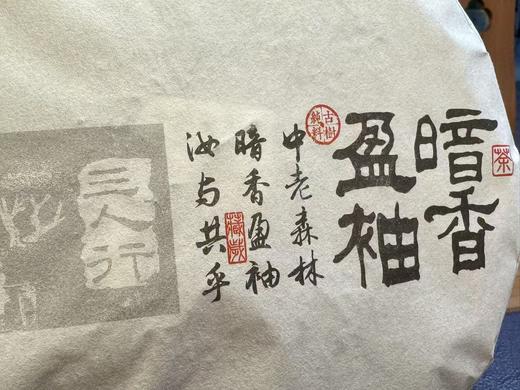 茶
暗香
盈袖
古樹
純料
中老森林
暗香盈袖
汝与共乎
三人行